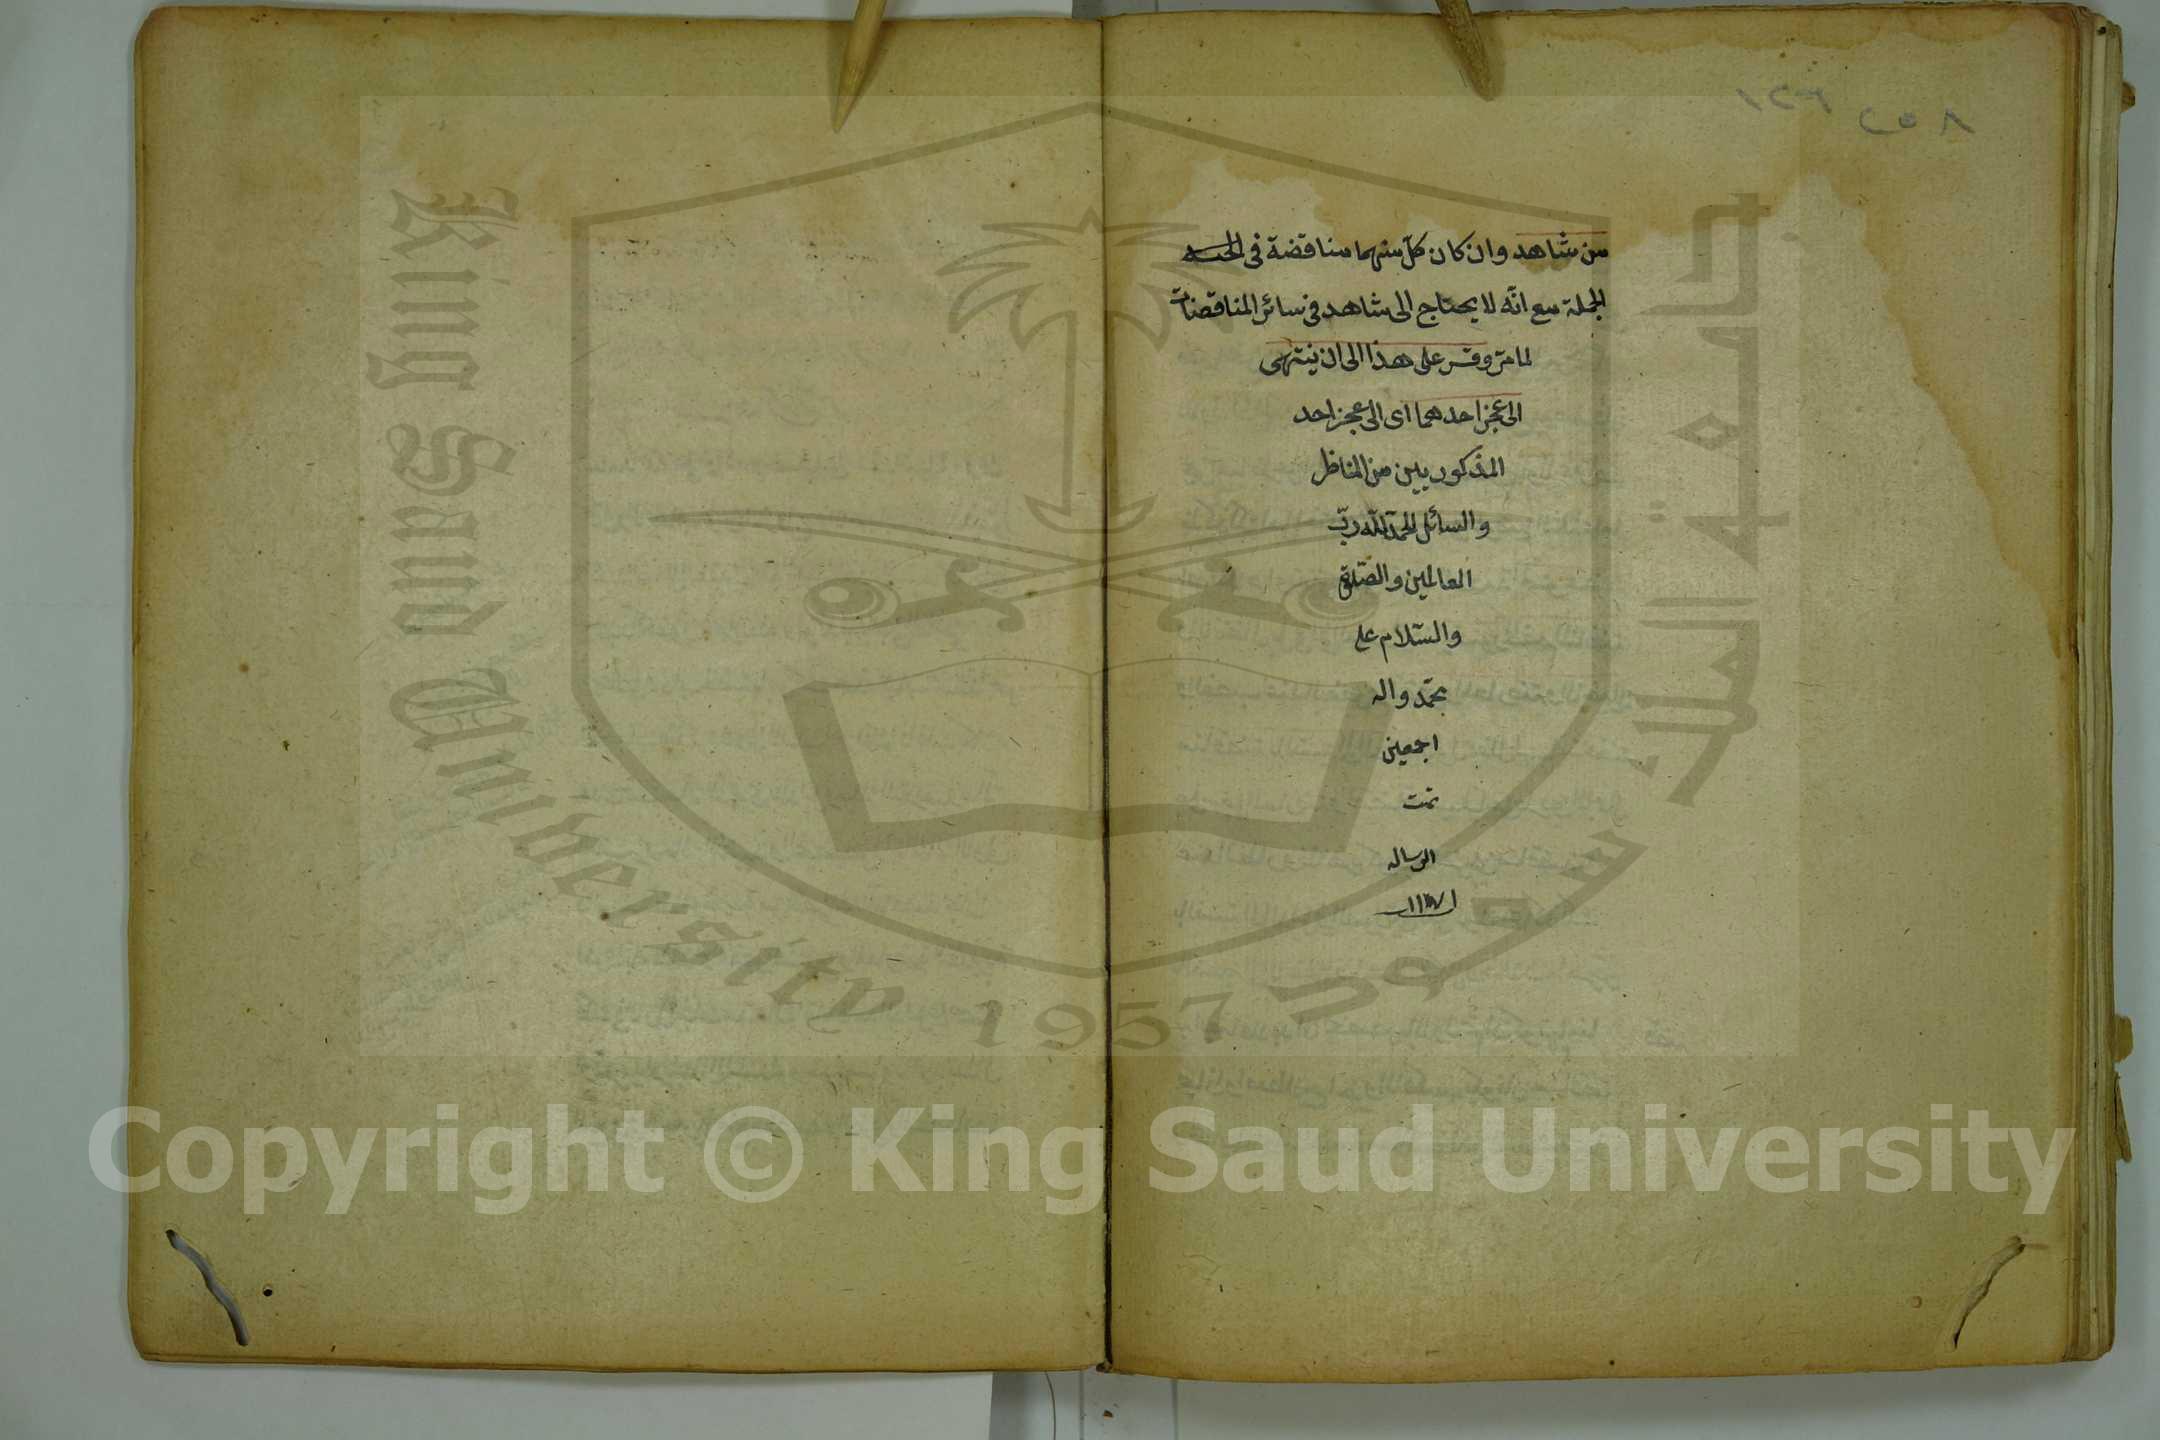 من شاهد وان كان كلّ منهما مناقضة فى
الجملة مع انّه لا يحتاج الى شاهد فى سائر المناقضات
لما مرّ وقس على هذا الى ان ينتهى
الى عجز احدهما اى الى عجز احد
المذكورين من المناظر
والسائل الحمد لله ربّ
العالمين والصّلوة
والسّلام على
محمّد واله
اجمعين
تمت
الرساله
King Saud University
1957
جامعة الملك سعود
Copyright © King Saud University